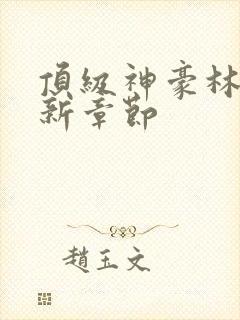 頂級神豪林
新章節
趙玉文